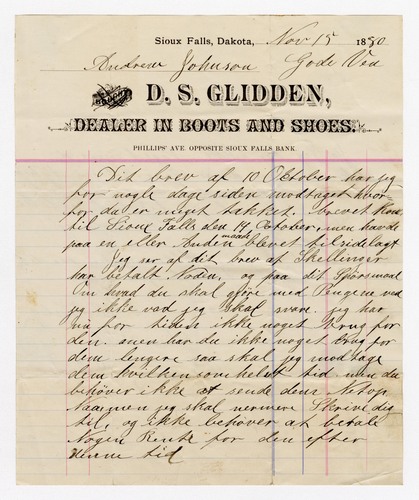 Sioux Falls, Dakota, Nov 15 1880
Andrew Johnson Gode Ven
D. S. GLIDDEN,
DEALER IN BOOTS AND SHOES.
PHILLIPS' AVE. OPPOSITE SIOUX FALLS BANK.
Dit brev af 10 Oktober har jeg
for nogle dage siden modtaget hvor-
for du er meget takket. brevet kom
til Sioux Falls den 14 October, men havde
paa en eller Anden maade blevet tilsidelagt
Jeg ser af dit brev af Skellinger
har betalt Nodia, og paa dit Spørsmaal
Om hvad du skal gjøre med Pengene ved
jeg ikke vad jeg skal svare. jeg har
nu for tiden ikke noget brug for
den. men har du ikke noget brug for
dem lengere saa skal jeg modtage
dem hvilken somhelst tid. men du
behøver ikke at sende dem Netop
Naa men jeg skal nermere Skrive dig
til, og ikke behøver at betale
Nogen Rente for den efter
denne tid